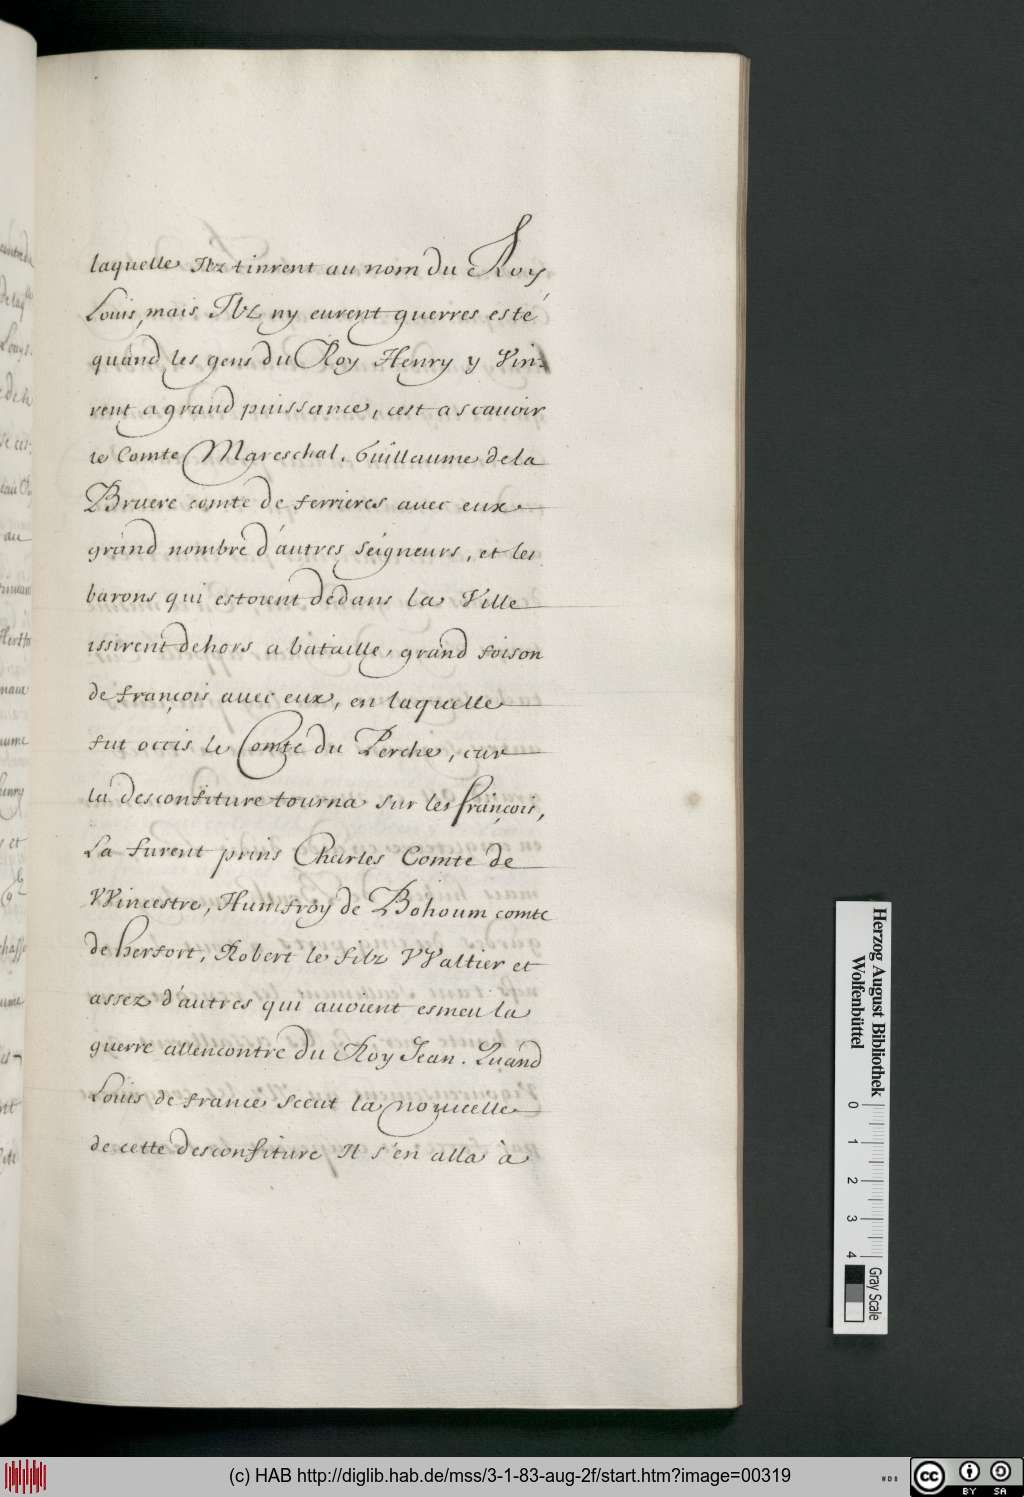 laquelle Ilz tinrent au nom du Roy
Louis, mais Ilz ny eurent guerres esté
quand les gens du Roy Henry y Vin-
rent a grand puissance, cest a scauoir
le Comte Mareschal. Guillaume de la
Bruere comte de ferrieres auec eux
grand nombre d'autres seigneurs, et les
barons qui estoient dedans la Ville
issirent dehors a bataille, grand foison
de françois auec eux, en laquelle
fut occis le Comte du Perche, car
la desconfiture tourna sur les françois,
La furent prins Charles Comte de
VVincestre, Humfroy de Bohoum comte
de herfort, Robert le filz VValtier et
assez d'autres qui auoient esmeu la
guerre allencontre du Roy Jean. Quand
Louis de france sceut la nouuelle
de cette desconfiture Il s'en alla à
Herzog August Bibliothek
Wolfenbüttel
0 1 2 3 4
Gray Scale
(c) HAB http://diglib.hab.de/mss/3-1-83-aug-2f/start.htm?image=00319
cc BY SA